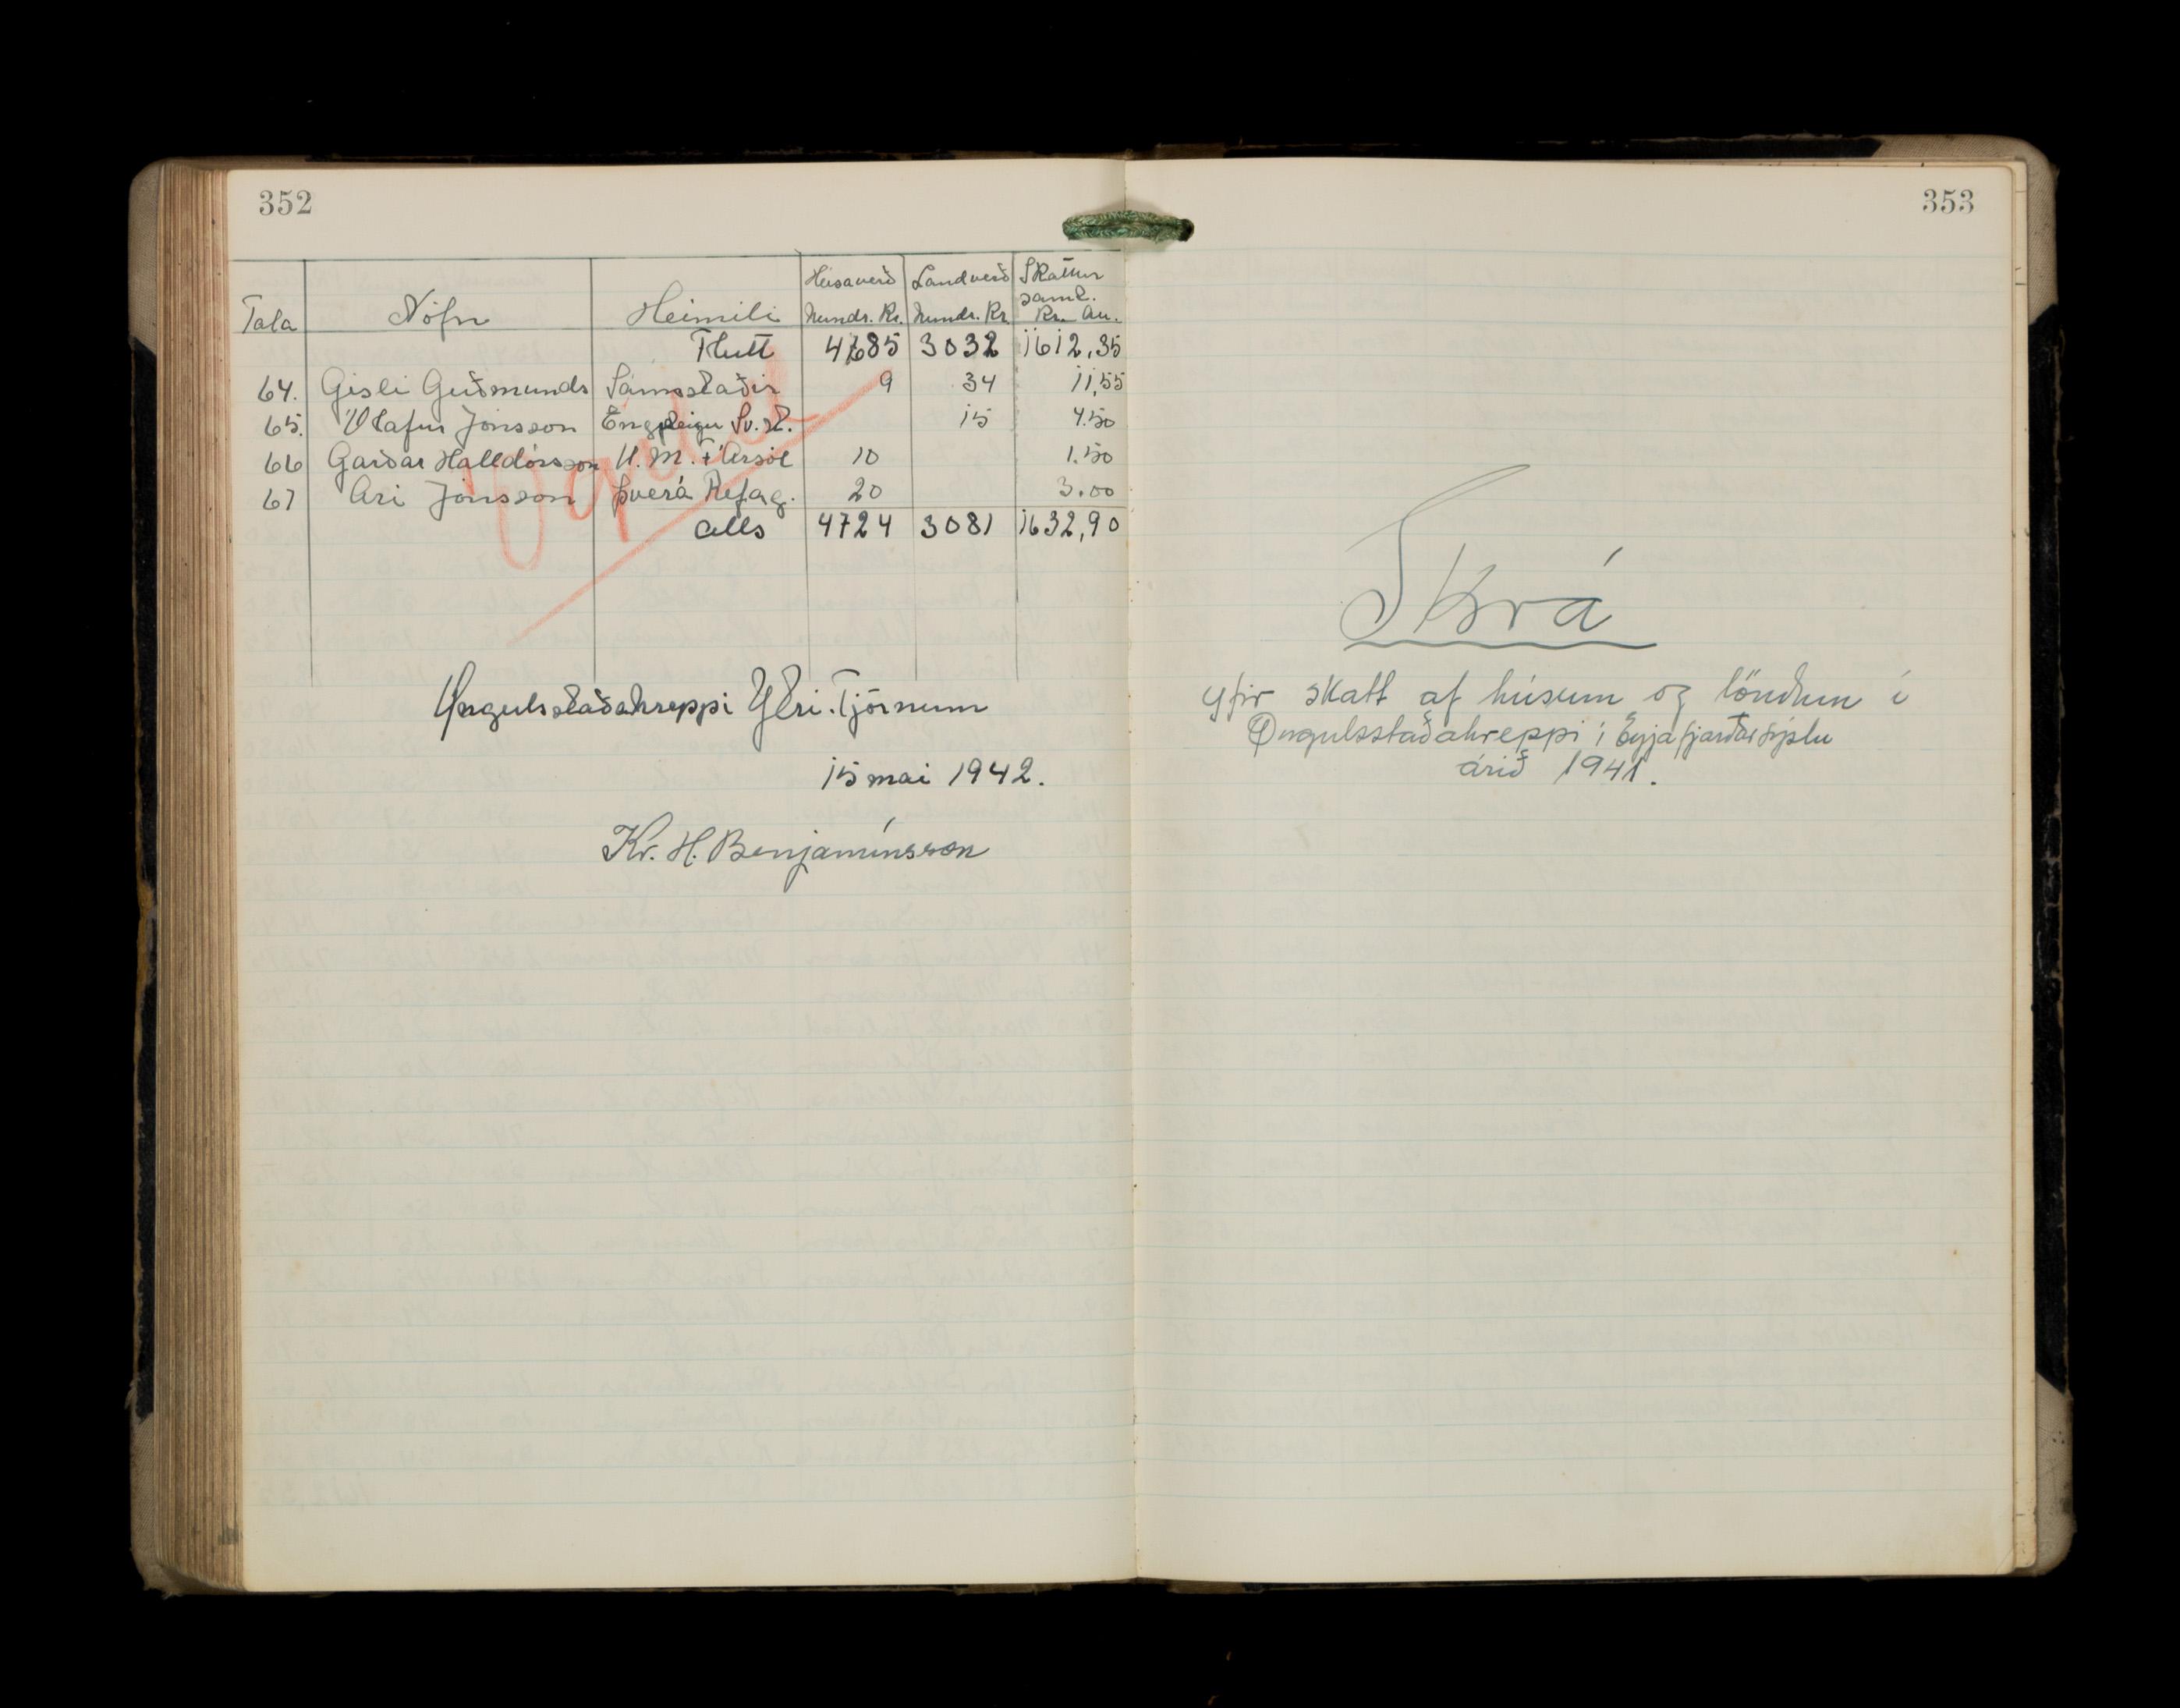 352
Tala Nöfn Heimili Húsaverð Hundr. Kr. Landverð Hundr. Kr. Skattur saml. Kr. Au.
Flutt 4685 3032 1612,35
64. Gisli Guðmunds Sámsstaðir 9 34 11,55
65. Ólafur Jónsson Engjaleigu 15 4.50
66 Garðar Halldórsson U.M.F. Ársól 10 1.50
67 Ari Jónsson Þverá Refag. 20 3.00
alls 4724 3081 1632,90
Ógild
Öngulsstaðahreppi Ytri-Tjörnum
15 mai 1942.
Kr. H. Benjamínsson
353
Skrá
yfir skatt af húsum og löndum í
Öngulsstaðahreppi í Eyjafjarðarsýslu
árið 1941.